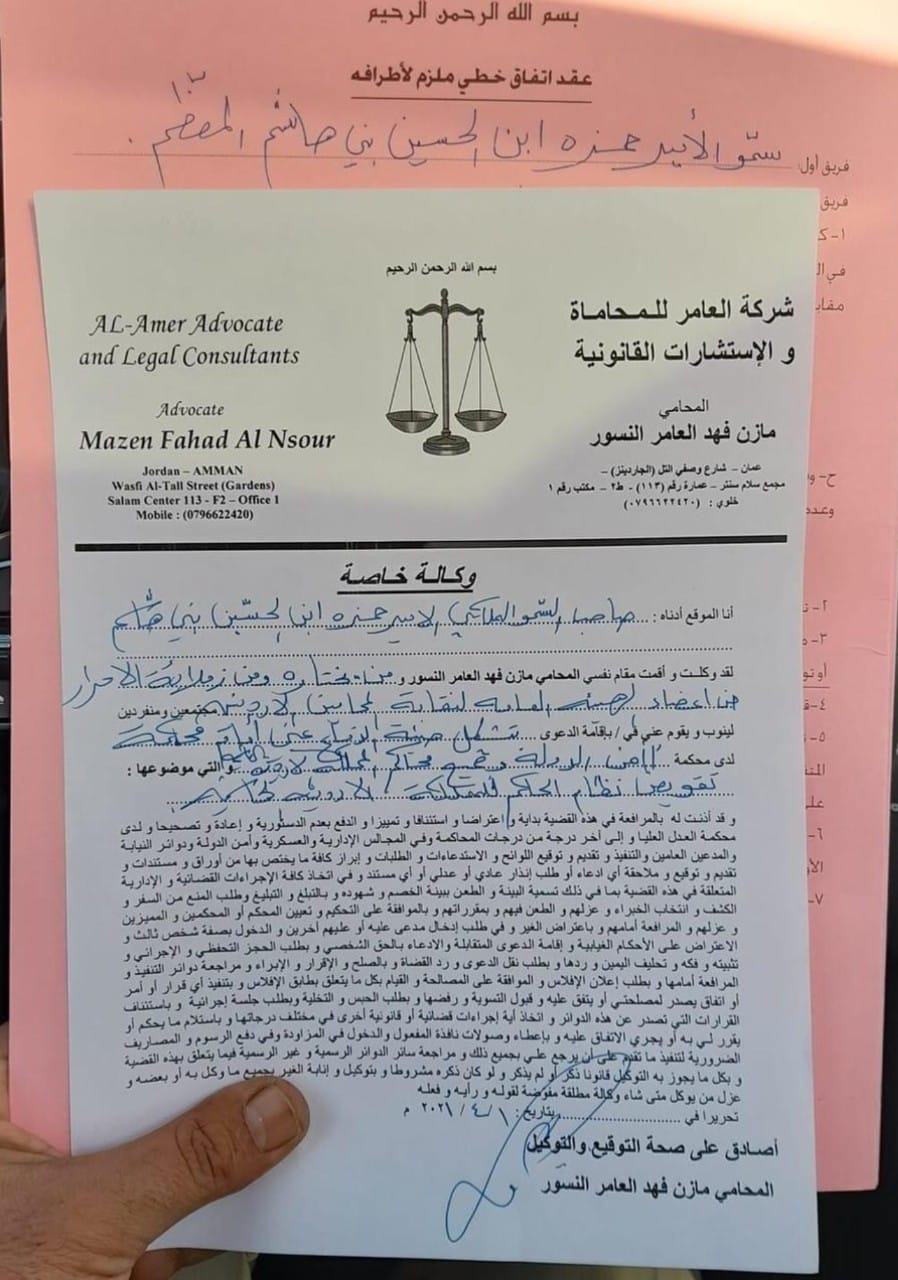 بسم الله الرحمن الرحيم
عقد اتفاق خطي ملزم لأطرافه
فريق أول: سمّو الأمير حمزه ابن الحسين بني هاشم المعظّم.
فريق
١- ك
في ال
مقاب
بسم الله الرحمن الرحيم
AL-Amer Advocate
and Legal Consultants
شركة العامر للـمحـامـاة
و الإستشارات القانونية
Advocate
Mazen Fahad Al Nsour
المحامي
مازن فهد العامر النسور
Jordan – AMMAN
Wasfi Al-Tall Street (Gardens)
Salam Center 113 - F2 – Office 1
Mobile : (0796622420)
عمان – شارع وصفي التل (الجاردينز) –
مجمع سلام سنتر – عمارة رقم (١١٣) - ط٢ – مكتب رقم ١
خلوي : (٠٧٩٦٦٢٢٤٢٠)
وكـالـة خـاصـة
أنا الموقع أدناه : صاحب السمو الملكي الامير حمزه ابن الحسين بني هاشم
لقد وكلت و أقمت مقام نفسي المحامي مازن فهد العامر النسور و من يختاره ومن زملائه الاحرار
من اعضاء الهيئه العامه لنقابة المحامين الاردنيين مجتمعين ومنفردين
لينوب و يقوم عني في / بإقامة الدعوى
لدى محكمة أمن الدولة و والتي موضوعها :
تقويض نظام الحكم المملكة الاردنية
و قد أذنت له بالمرافعة في هذه القضية بداية و اعتراضا و استئنافا و تمييزا و الدفع بعدم الدستورية و إعادة و تصحيحا و لدى
محكمة العدل العليا و إلى آخر درجة من درجات المحاكمة وفي المجالس الإدارية والعسكرية وأمن الدولة ودوائر النيابة
والمدعين العامين والتنفيذ و تقديم و توقيع اللوائح و الاستدعاءات و الطلبات و إبراز كافة ما يختص بها من أوراق و مستندات و
تقديم و توقيع و ملاحقة أي ادعاء أو طلب إنذار عادي أو عدلي أو أي مستند و في اتخاذ كافة الإجراءات القضائية و الإدارية
المتعلقة في هذه القضية بما في ذلك تسمية البينة و الطعن ببينة الخصم و شهوده و بالتبلغ و التبليغ وطلب المنع من السفر و
الكشف و انتخاب الخبراء و عزلهم و الطعن فيهم و بمقرراتهم و بالموافقة على التحكيم و تعيين المحكم أو المحكمين و المميزين
و عزلهم و المرافعة أمامهم و باعتراض الغير و في طلب إدخال مدعى عليه أو عليهم آخرين و الدخول بصفة شخص ثالث و
الاعتراض على الأحكام الغيابية و إقامة الدعوى المتقابلة والادعاء بالحق الشخصي و بطلب الحجز التحفظي و الإجرائي و
تثبيته و فكه و تحليف اليمين و ردها و بطلب نقل الدعوى و رد القضاة و بالصلح و الإقرار و الإبراء و مراجعة دوائر التنفيذ و
المرافعة أمامها و بطلب إعلان الإفلاس و الموافقة على المصالحة و القيام بكل ما يتعلق بطابق الإفلاس و بتنفيذ أي قرار أو أمر
أو اتفاق يصدر لمصلحتي أو يتفق عليه و قبول التسوية و رفضها و بطلب الحبس و التخلية وبطلب جلسة إجرائية و باستئناف
القرارات التي تصدر عن هذه الدوائر و اتخاذ أية إجراءات قضائية أو قانونية أخرى في مختلف درجاتها و باستلام ما يحكم أو
يقرر لي به أو يجري الاتفاق عليه و بإعطاء وصولات نافذة المفعول والدخول في المزاودة وفي دفع الرسوم و المصاريف
الضرورية لتنفيذ ما تقدم على أن يرجع علي بجميع ذلك و مراجعة سائر الدوائر الرسمية و غير الرسمية فيما يتعلق بهذه القضية
و بكل ما يجوز به التوكيل قانونا ذكر أو لم يذكر و لو كان ذكره مشروطا و بتوكيل و إنابة الغير بجميع ما وكل به أو بعضه و
عزل من يوكل متى شاء وكالة مطلقة مفوضة لقوله و رأيه و فعله
تحريرا في بتاريخ : ١ / ٤ / ٢٠٢١ م
أصادق على صحة التوقيع والتوكيل
المحامي مازن فهد العامر النسور